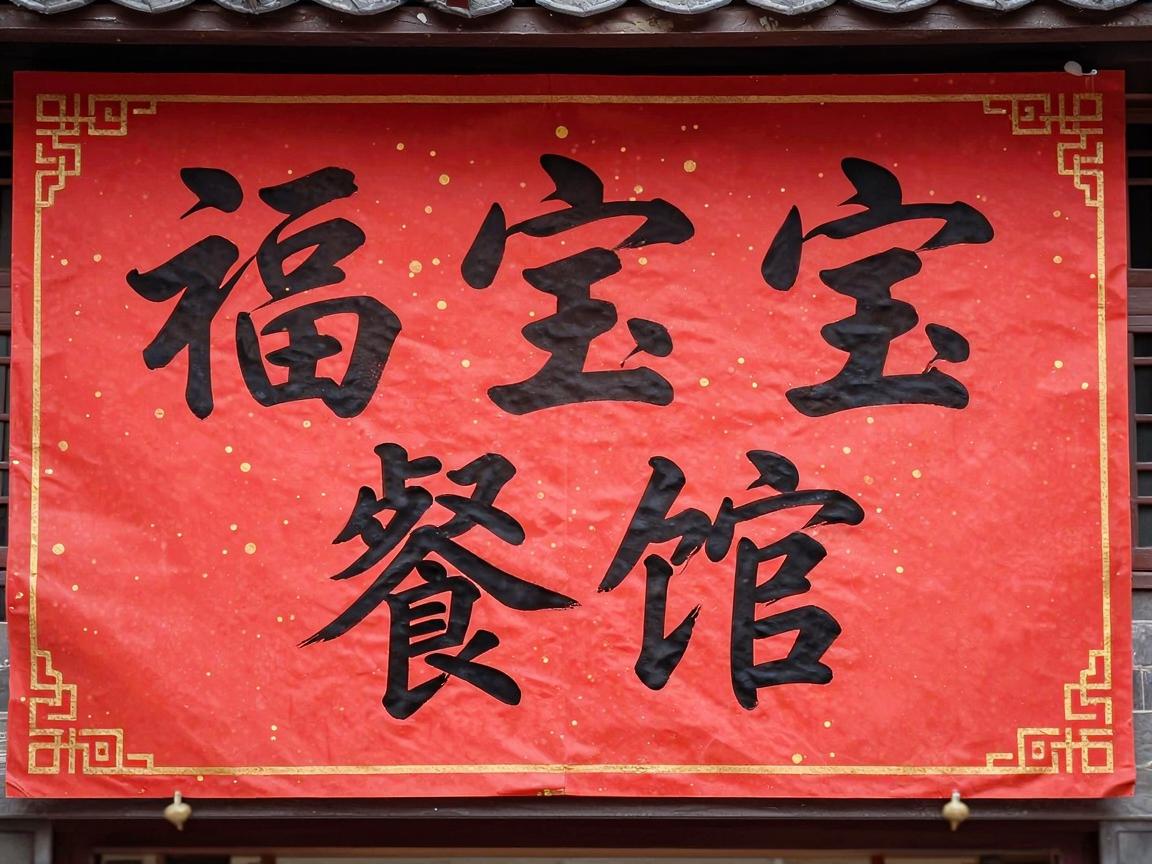 福宝宝
餐馆